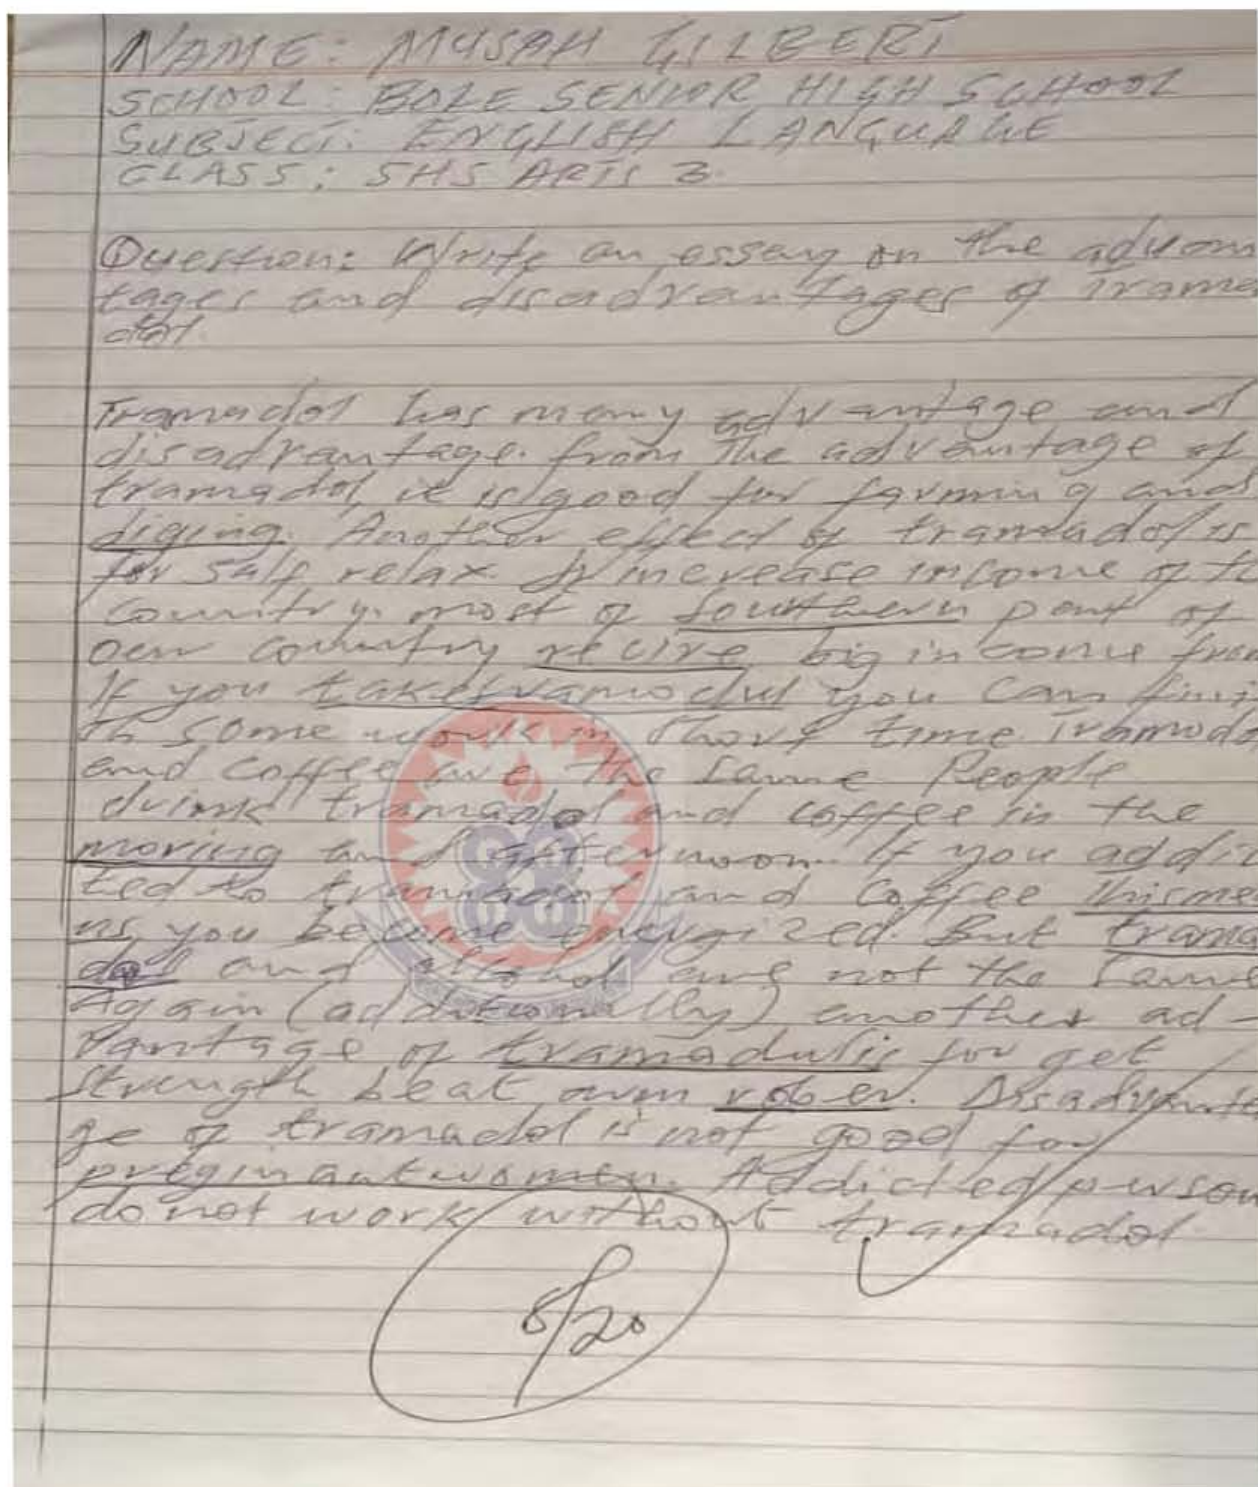 NAME: MUSAH GILBERT
SCHOOL: BOLE SENIOR HIGH SCHOOL
SUBJECT: ENGLISH LANGUAGE
CLASS: SHS ARTS 3.
Question: Write an essay on the advan
tages and disadvantages of trama
dol.
Tramadol has many advantage and
disadvantage. from the advantage of
tramadol, it is good for farming and
diging. Another effect of tramadol is
for salf relax. It increase income of th
country. most of southern part of
our country recive big income from
If you taketramodul you can fini
sh some work in short time. Tramado
and coffee are the same People
drink tramadol and coffee in the
moring and afternoon. If you addic
ted to tramadol and coffee thismea
ns you become energized. But trama
dol and are not the same
Again (additionally) another ad-
vantage of tramadulis for get
strength beat arm rober. Disadvanta
ge of tramadol is not good for
preginantwomen. Addicted person
do not work without tramadol.
8/20